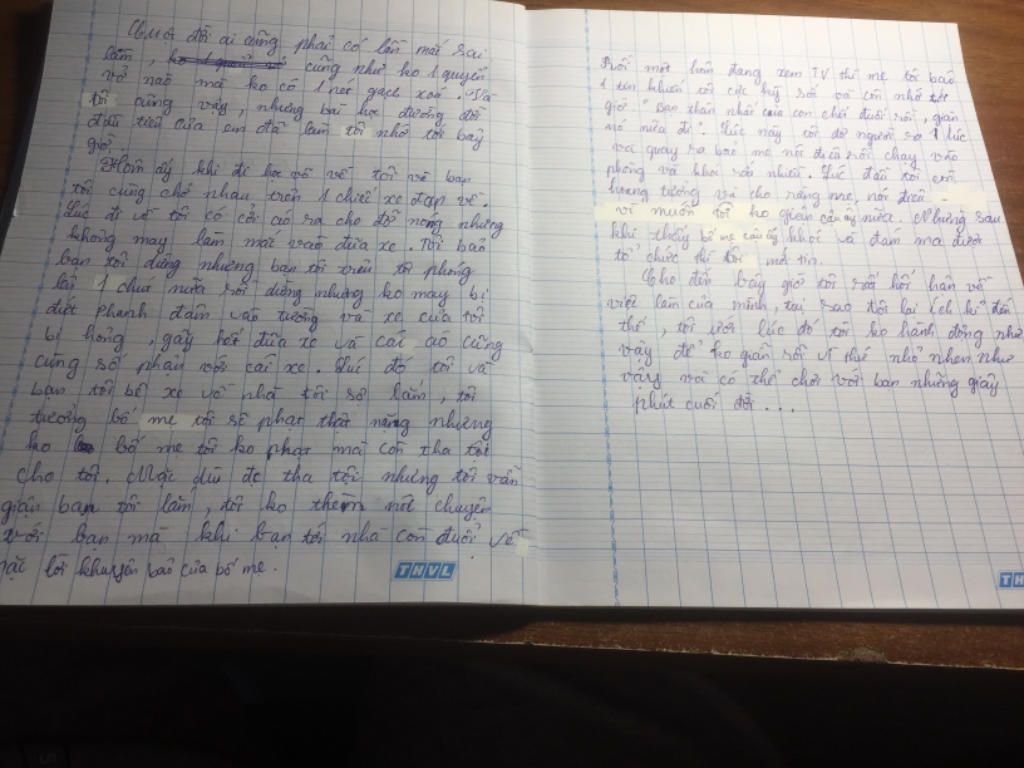 Cuộc đời ai cũng phải có lần mắc sai
lầm, cũng như ko 1 quyển
vở nào mà ko có 1 nét gạch xoá. Và
tôi cũng vậy, nhưng bài học đường đời
đầu tiên của em đã làm tôi nhớ tới bây
giờ.
Hôm ấy khi đi học về tôi và bạn
tôi cùng chở nhau trên 1 chiếc xe đạp về.
Lúc đi về tôi có cởi áo ra cho đỡ nóng nhưng
không may làm mắc vào đũa xe. Tôi bảo
bạn tôi dừng nhưng bạn tôi trêu tôi phóng
lái 1 chút nữa rồi dừng nhưng ko may bị
đứt phanh đâm vào tường và xe của tôi
bị hỏng, gãy hết đũa xe và cái áo cũng
cùng số phận với cái xe. Lúc đó tôi và
bạn tôi bê xe về nhà tôi sợ lắm, tôi
tưởng bố mẹ tôi sẽ phạt thật nặng nhưng
ko bố mẹ tôi ko phạt mà còn tha tội
cho tôi. Mặc dù đc tha tội nhưng tôi vẫn
giận bạn tôi lắm, tôi ko thèm nói chuyện
với bạn mà khi bạn tới nhà còn đuổi về
mặc lời khuyên bảo của bố mẹ.
Rồi một hôm đang xem TV thì mẹ tôi bảo
1 tin khiến tôi cực kỳ sốc và còn nhớ tới
giờ. "Bạn thân nhất của con chết đuối rồi, giận
nó nữa đi". Lúc này tôi đờ người ra 1 lúc
và quay ra bảo mẹ nói điêu rồi chạy vào
phòng và khóc rất nhiều. Lúc đầu tôi còn
hoang tưởng và cho rằng mẹ nói điêu
vì muốn tôi ko giận cậu ấy nữa. Nhưng sau
khi thấy bố mẹ cậu ấy khóc và đám ma được
tổ chức thì tôi mới tin.
Cho đến bây giờ tôi rất hối hận về
việc làm của mình, tại sao tôi lại ích kỉ đến
thế, tôi ước lúc đó tôi ko hành động như
vậy để ko giận rồi vì thứ nhỏ nhen như
vậy và có thể chơi với bạn những giây
phút cuối đời...
THVL
TH